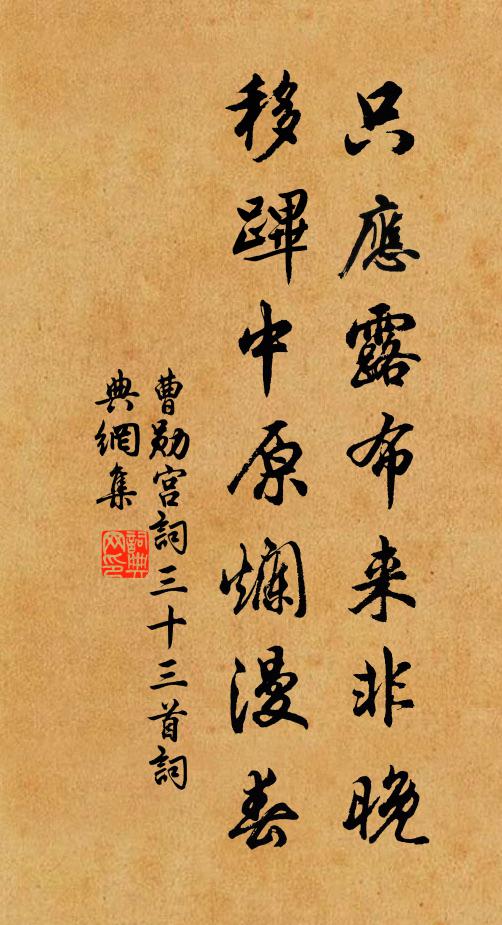 只應露布来非晚
移蹕中原爛漫春
曹勛宮詞三十三首詞
典網集
詞典網印